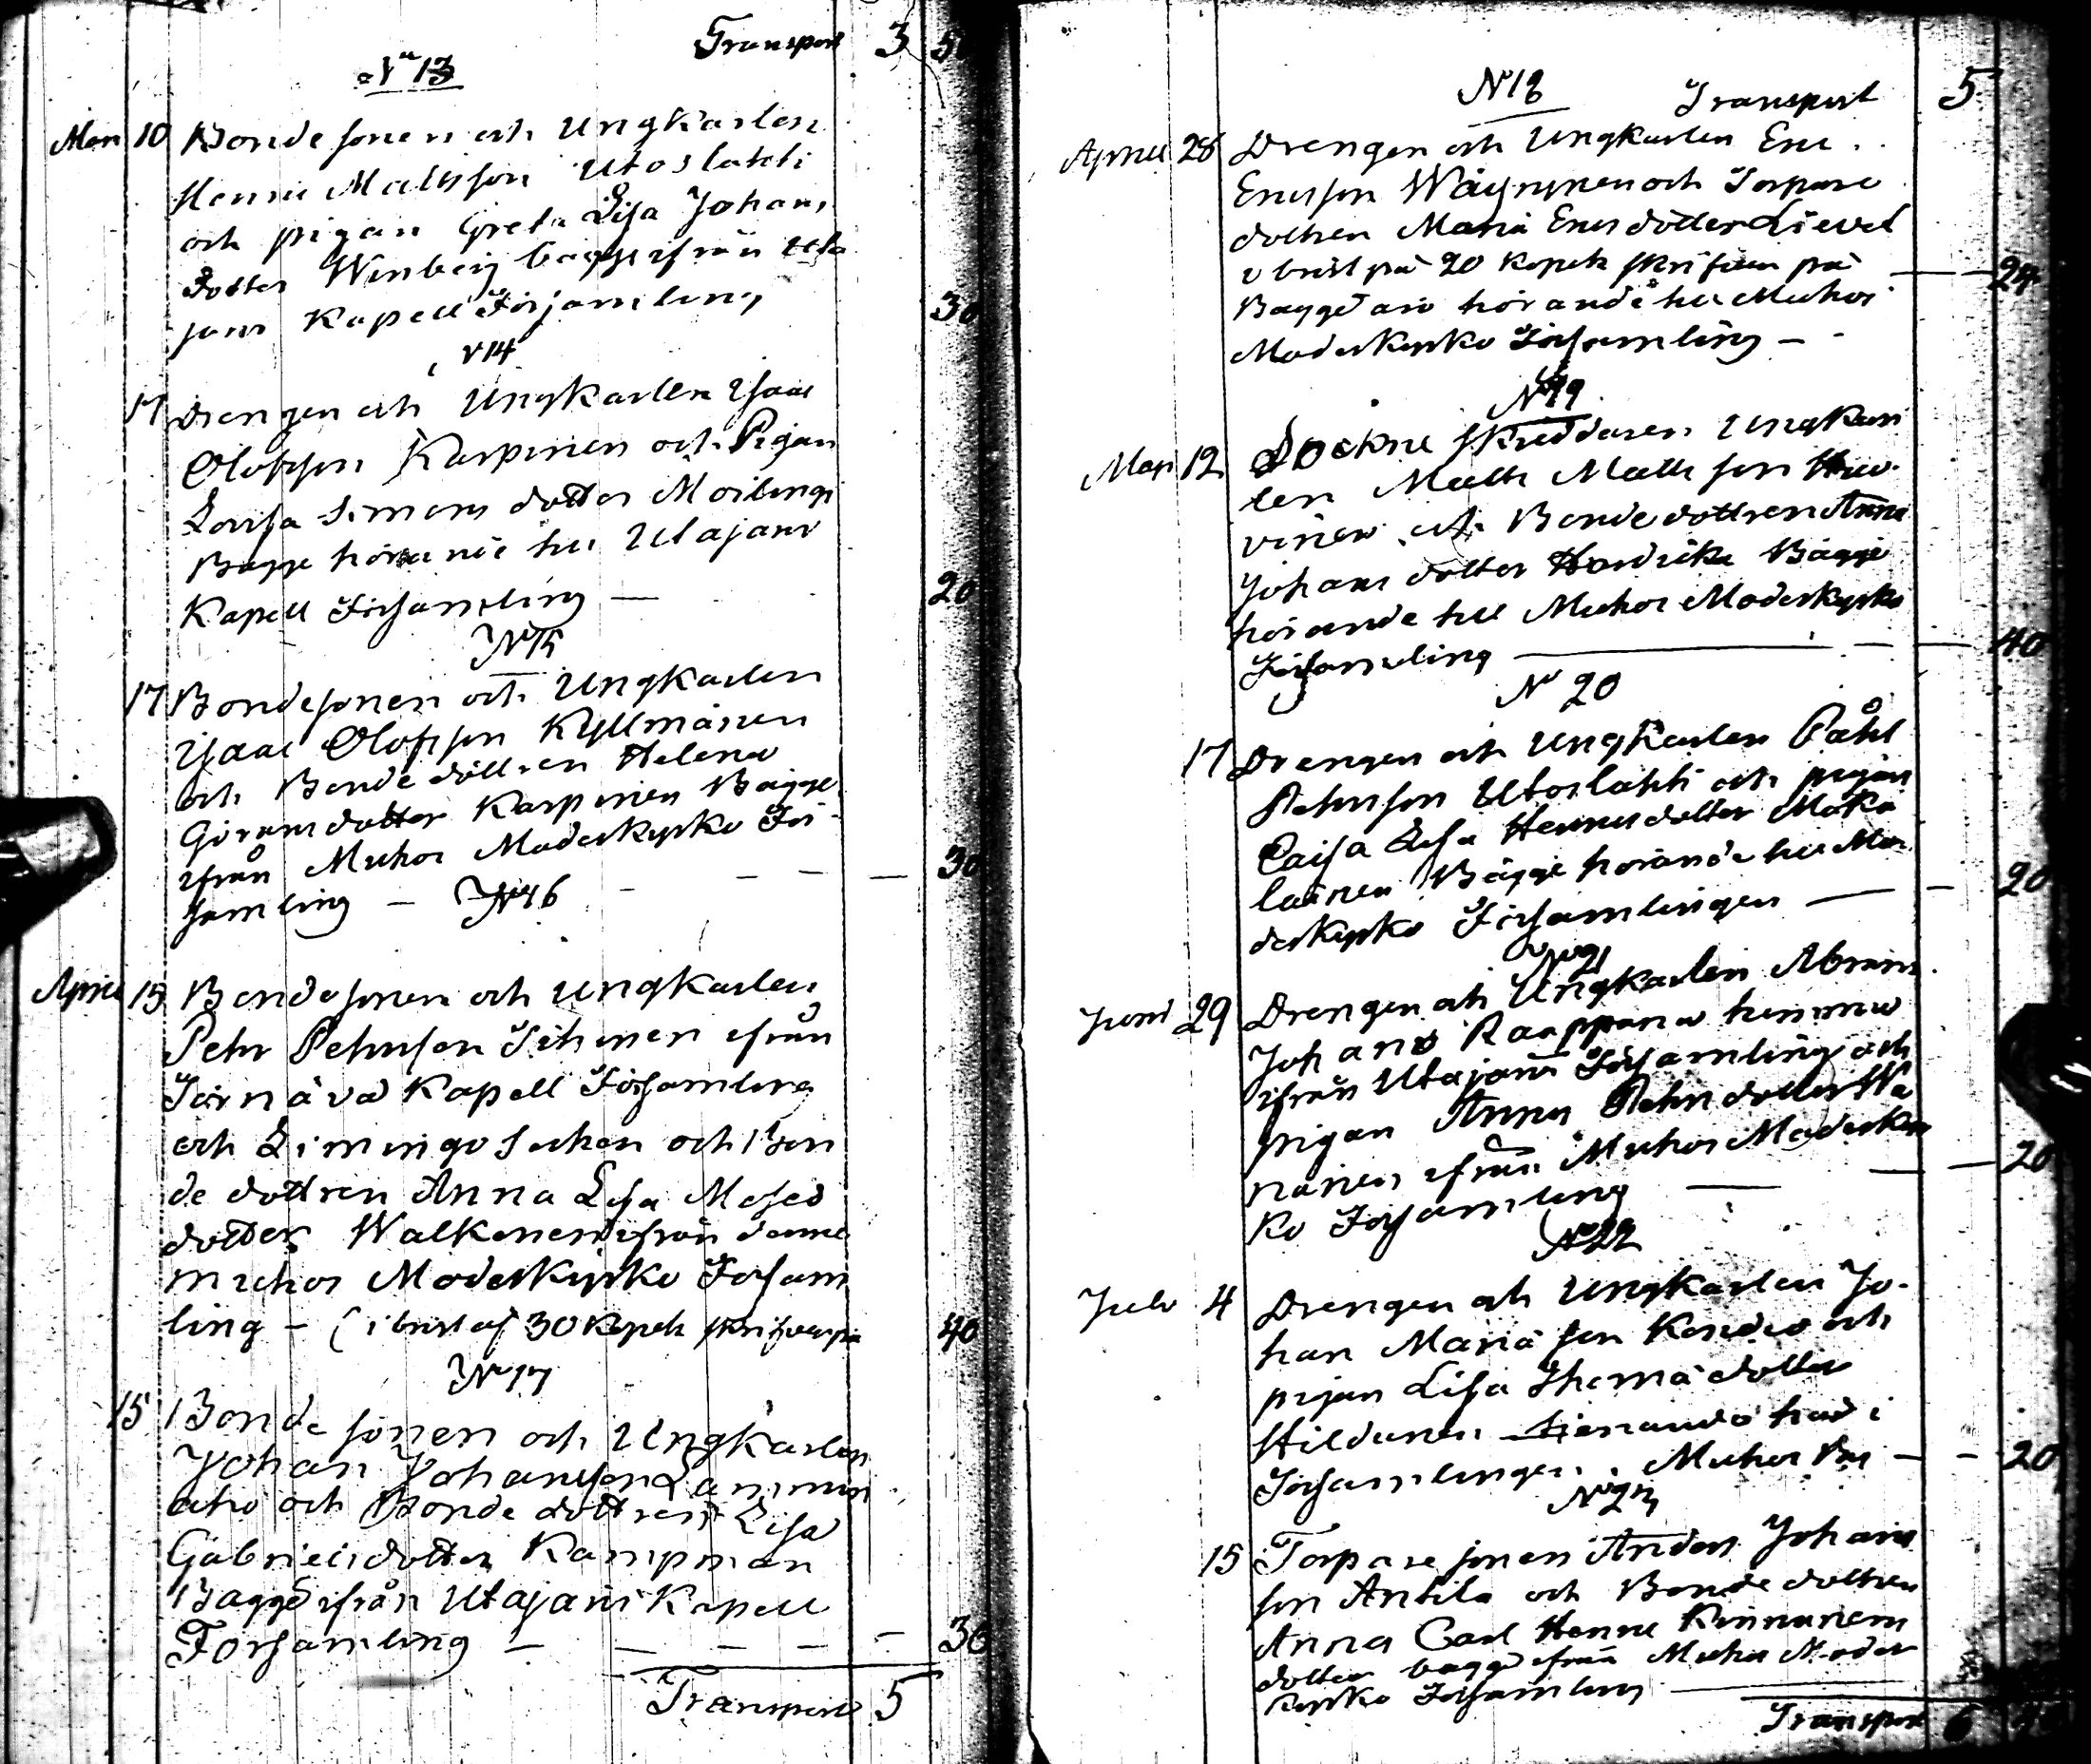 Transport 3 5
No 13
Mars 10 Bondesonen och Ungkarlen
Henric Mattsson Utoslahti
och pigan Greta Lisa Johans
dotter Winberg bägge ifrån Uta
jarvi Kapell Församling 30
N 14
17 Drengen och Ungkarlen Isaac
Olofsson Karpinen och Pigan
Lovisa Simons dotter Moilingi
Bägge hörande till Utajarvi
Kapell Församling — 20
No 15
17 Bondesonen och Ungkarlen
Isaac Olofsson Kyllmänen
och Bonde dottren Helena
Göransdotter Karpinen Bägge
ifrån Muhos Moderkyrko För
samling — 30
No 16
April 15 Bondesonen och Ungkarlen
Pehr Pehrsson Sihvonen ifrån
Tärnävä Kapell Församling
och Limingo Sochen och Bon
de dottren Anna Lisa Moses
dotter Walkonen ifrån denne
Muhos Moderkyrko Försam
ling — (i brist af 30 Kopek skrifven på 40
No 17
15 Bonde sonen och Ungkarlen
Johan Johansson Lammin
aho och Bonde dottren Lisa
Gabrielsdotter Kampman
Bägge ifrån Utajärvi Kapell
Församling — — — — — 30
Transport 5
No 18 Transport 5
April 28 Drengen och Ungkarlen Eric
Ericsson Wäyrynen och Torpare
dottren Maria Ericsdotter Lievel
i brist på 20 Kopek skrifven på — 24
Bägge äro hörande till Muhos
Moderkyrko Församling —
No 19
Maji 12 Sockne Skreddaren Ungkar
len Matts Mattsson Huo
vinen och Bondedottren Anna
Johans dotter Hardicka Bägge
hörande till Muhos Moderkyrko
Församling — 40
No 20
17 Drengen och Ungkarlen Påhl
Pehrsson Utoslahti och pigan
Caisa Lisa Henricsdotter Mäkä
läinen Bägge hörande till Mo
derkyrko Församlingen — 20
No 21
Juni 29 Drengen och Ungkarlen Abram
Johans Raappana hemma
ifrån Utajärvi Församling och
pigan Anna Pehrs dotter Wä
nänen ifrån Muhos Moderkyr
ko Församling — 20
No 22
Juli 4 Drengen och Ungkarlen Jo-
han Mariä son Kondio och
pigan Lisa Thomä dotter
Hildunen tienande här i
Församlingen. Muhos — 20
No 23
15 Torpare sonen Anders Johans
son Antila och Bonde dottren
Anna Carl Henric Kinnunens
dotter bägge ifrån Muhos Moder
kyrko Församling
Transport 6